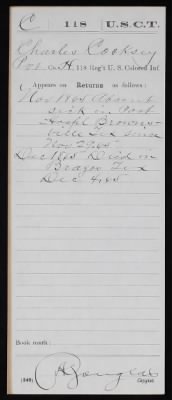 C | 118 | U.S.C.T.
Charles Cooksey
Pvt, Co. H, 118 Reg't U. S. Colored Inf.
Appears on Returns as follows:
Nov 1865 Absent
sick in Post
Hospl Browns-
ville Tex since
Nov 29, 65
Dec 1865 Died in
Brazos Tex
Dec 4, 65
Book mark:
(546)
Copyist.